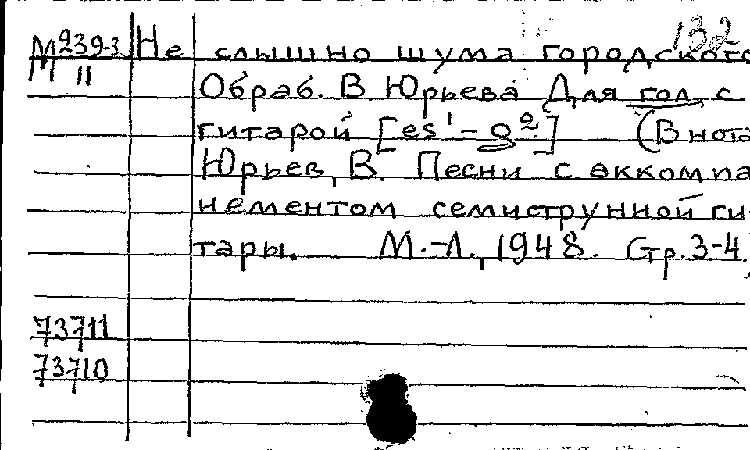 132
М 239-3 Не слышно шума городского
М 11 Обраб. В Юрьева Для гол с
гитарой [es¹-g²] (В нота
Юрьев, В. Песни с аккомпа
нементом семиструнной ги
тары. М.-Л., 1948. Стр. 3-4.
73711
73710